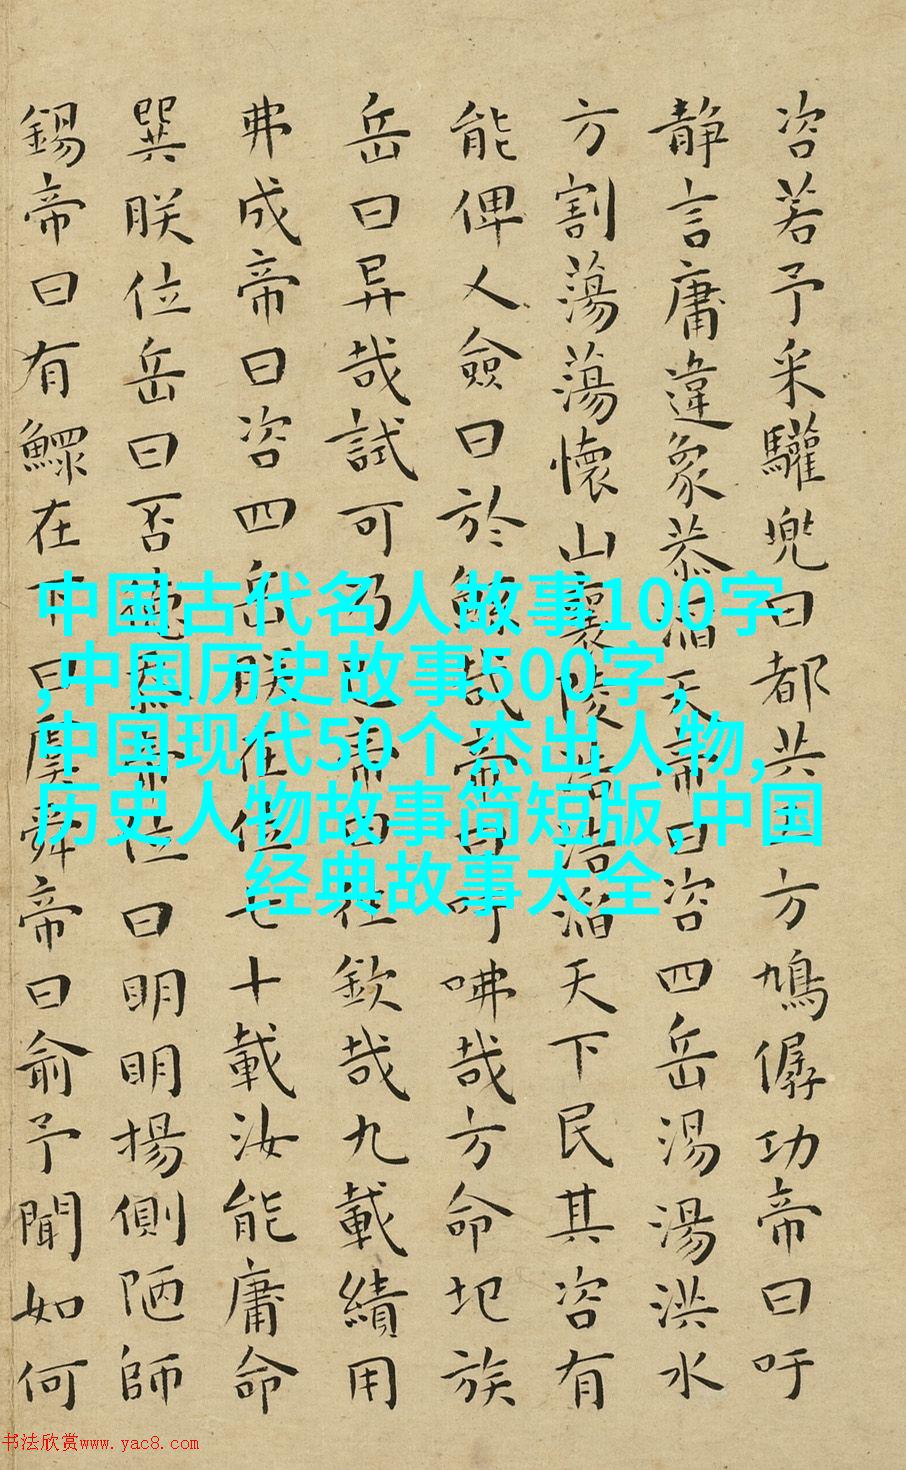 咨若予采驩兜曰都共工方鳩僝功帝曰吁
静言庸違象恭滔天帝曰咨四岳湯湯洪水
方割蕩蕩懷山襄陵浩浩滔天下民其咨有
能俾乂僉曰於鯀哉帝曰吁咈哉方命圮族
岳曰异哉試可乃已帝曰往欽哉九載績用
弗成帝曰咨四岳朕在位七十載汝能庸命
巽朕位岳曰否德忝帝位曰明明揚側陋師
錫帝曰有鰥在下曰虞舜帝曰俞予聞如何
中国古代名人故事100字
,中国历史故事500字,
中国现代50个杰出人物,
历史人物故事简短版,中国
经典故事大全
书法欣赏www.yac8.com